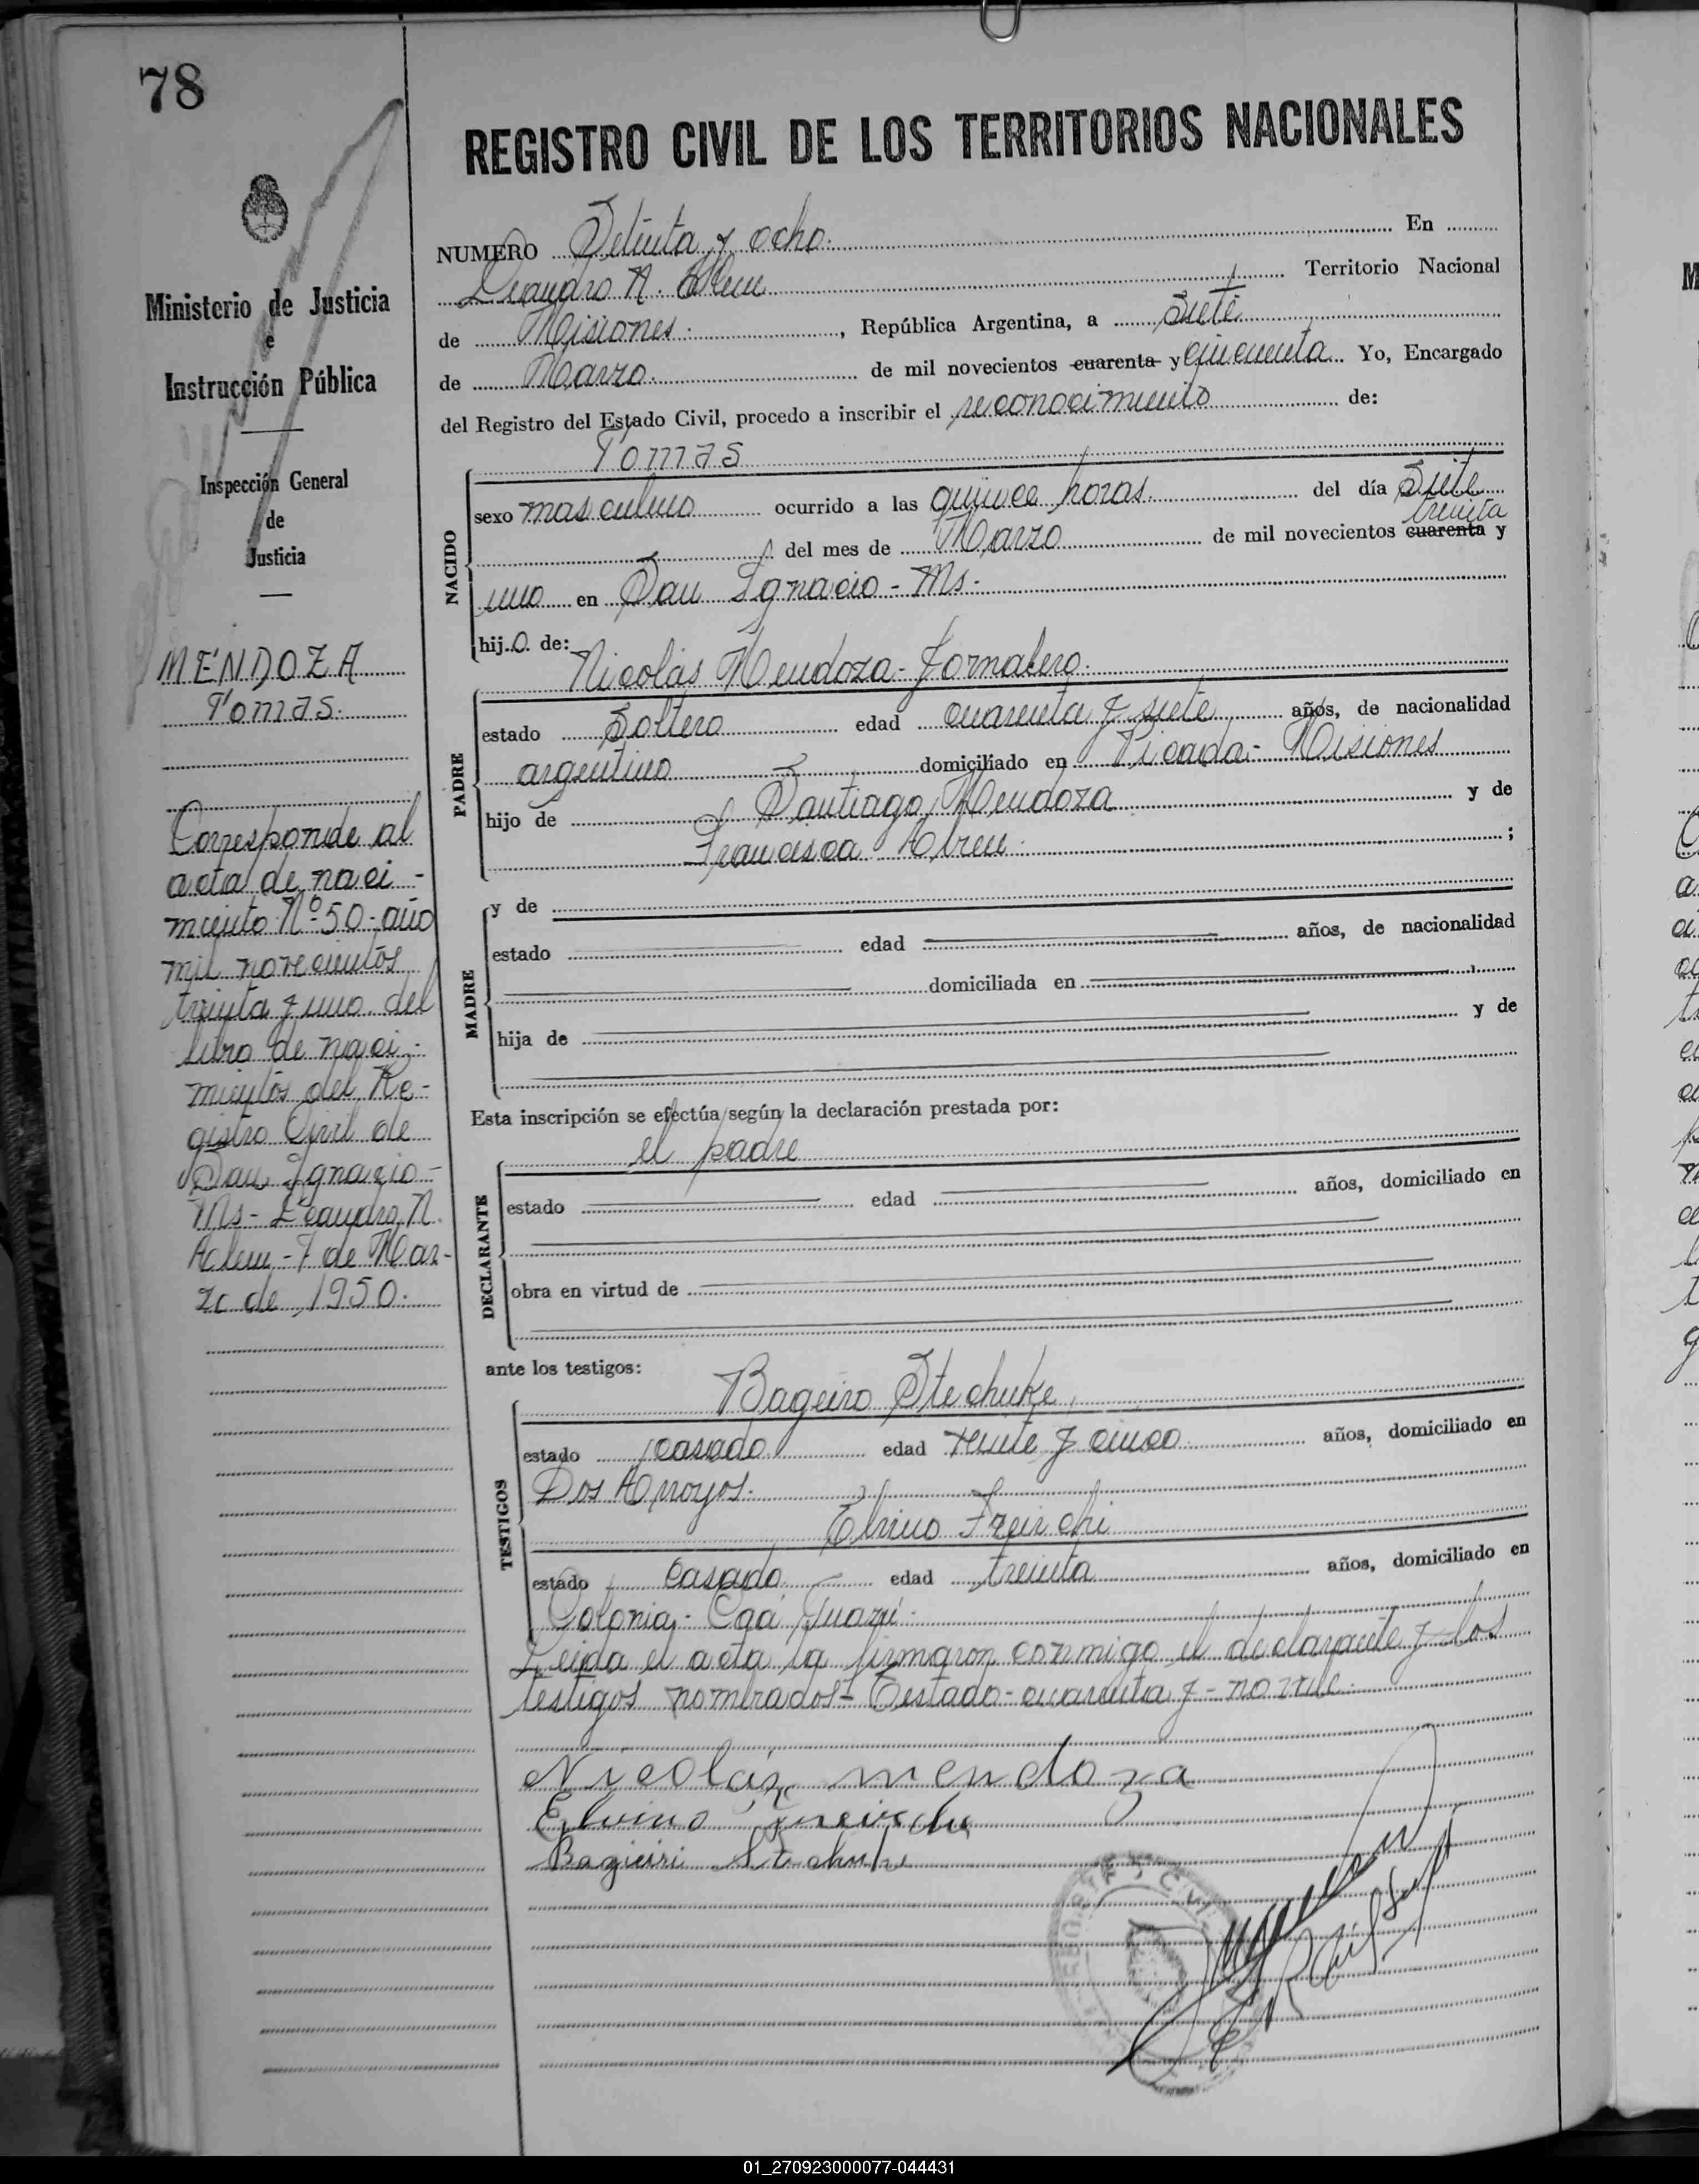 78
REGISTRO CIVIL DE LOS TERRITORIOS NACIONALES
Ministerio de Justicia
e
Instrucción Pública
Inspección General
de
Justicia
MENDOZA
Tomas.
Corresponde al
acta de naci-
miento Nº 50-año
mil novecientos
treinta y uno del
libro de naci-
mientos del Re-
gistro Civil de
San Ignacio-
Ms- Leandro N.
Alem-7 de Mar-
zo de 1950.
NUMERO Setenta y ocho. En
Leandro N. Alem Territorio Nacional
de Misiones. , República Argentina, a siete
de Marzo. de mil novecientos cuarenta y cincuenta Yo, Encargado
del Registro del Estado Civil, procedo a inscribir el reconocimiento de:
Tomas
NACIDO
sexo masculino ocurrido a las quince horas. del día siete
del mes de Marzo de mil novecientos cuarenta treinta y
uno en San Ignacio - Ms.
hijo de:
Nicolás Mendoza - Jornalero.
PADRE
estado Soltero edad cuarenta y siete años, de nacionalidad
argentino domiciliado en Picada - Misiones
hijo de Santiago Mendoza y de
Francisca Abreu ;
MADRE
y de
estado edad años, de nacionalidad
domiciliada en
hija de y de
Esta inscripción se efectúa según la declaración prestada por:
el padre
DECLARANTE
estado edad años, domiciliado en
obra en virtud de
ante los testigos:
TESTIGOS
Bageiro Stechuke
estado casado edad veinte y cinco años, domiciliado en
Dos Arroyos.
Elvino
estado casado edad treinta años, domiciliado en
Colonia - Caá Guazú.
Leída el acta la firmaron conmigo el declarante y los
testigos nombrados - Testado - cuarenta y - no vale.
Nicolás mendoza
Elvino
Bagieiri
REGISTRO CIVIL
01_270923000077-044431